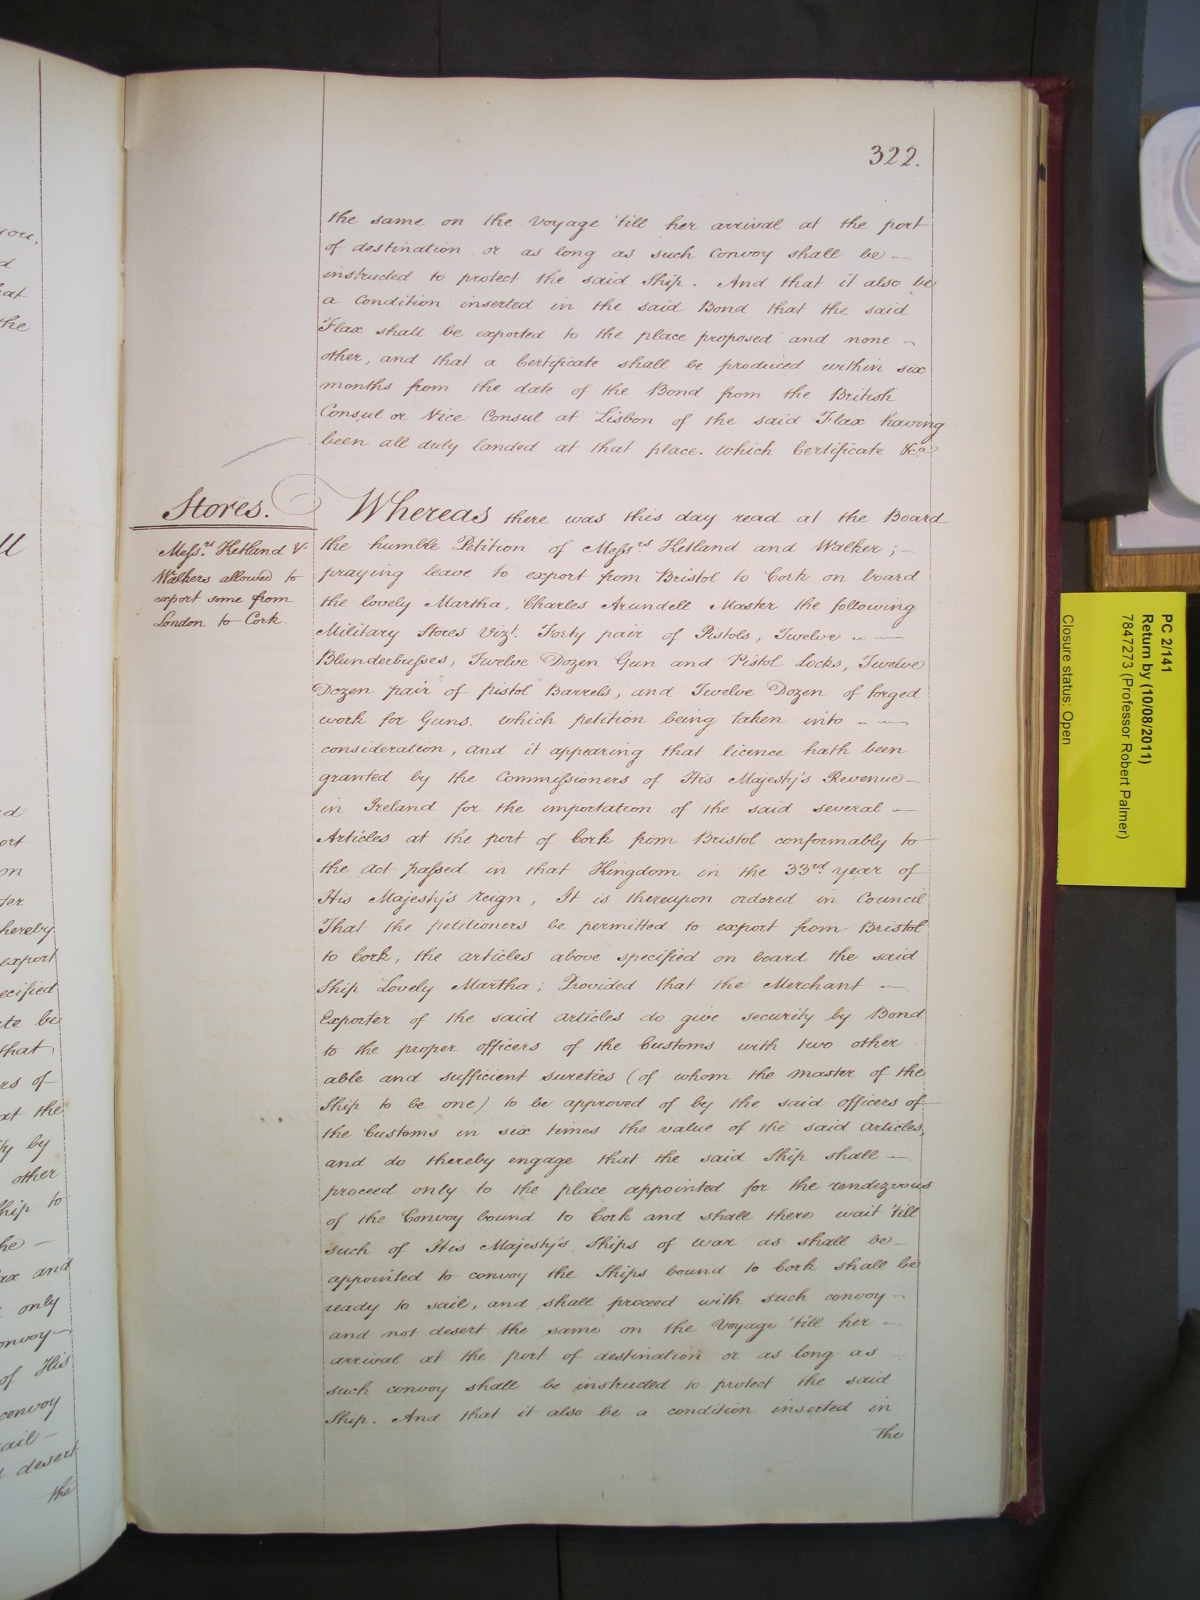 322.
the same on the voyage 'till her arrival at the port
of destination or as long as such Convoy shall be —
instructed to protect the said Ship. And that it also be
a Condition inserted in the said Bond that the said
Flax shall be exported to the place proposed and none –
other, and that a Certificate shall be produced within six
months from the date of the Bond from the British
Consul or Vice Consul at Lisbon of the said Flax having
been all duly landed at that place. which Certificate &ca
Stores.
Messrs. Ketland &
Walkers allowed to
export some from
London to Cork.
Whereas there was this day read at the Board
the humble Petition of Messrs Ketland and Walker; –
praying leave to export from Bristol to Cork on board
the lovely Martha, Charles Arundell Master the following
Military Stores Vizt. Forty pair of Pistols, Twelve – —
Blunderbusses, Twelve Dozen Gun and Pistol Locks, Twelve
Dozen pair of pistol Barrels, and Twelve Dozen of forged
work for Guns. which petition being taken into – —
consideration, and it appearing that licence hath been
granted by the Commissioners of His Majesty's Revenue –
in Ireland for the importation of the said several –
Articles at the port of Cork from Bristol conformably to
the act passed in that Kingdom in the 33rd. year of
His Majesty's reign, It is thereupon ordered in Council
That the petitioners be permitted to export from Bristol
to Cork, the articles above specified on board the said
Ship Lovely Martha; Provided that the Merchant –
Exporter of the said articles do give security by Bond
to the proper officers of the Customs with two other
able and sufficient sureties (of whom the master of the
Ship to be one) to be approved of by the said officers of
the Customs in six times the value of the said articles,
and do thereby engage that the said Ship shall –
proceed only to the place appointed for the rendezvous
of the Convoy bound to Cork and shall there wait 'till
such of His Majesty's Ships of war as shall be –
appointed to convoy the Ships bound to Cork shall be
ready to sail, and shall proceed with such convoy –
and not desert the same on the Voyage 'till her –
arrival at the port of destination or as long as
such convoy shall be instructed to protect the said
Ship. And that it also be a condition inserted in
the
PC 2/141
Return by (10/08/2011)
7847273 (Professor Robert Palmer)
Closure status: Open
you,
the
hereby
export
ecified
te be
that
rs of
at the
ty by
other
Ship to
he –
ax and
only
onvoy –
of His
convoy
ail –
desert
the